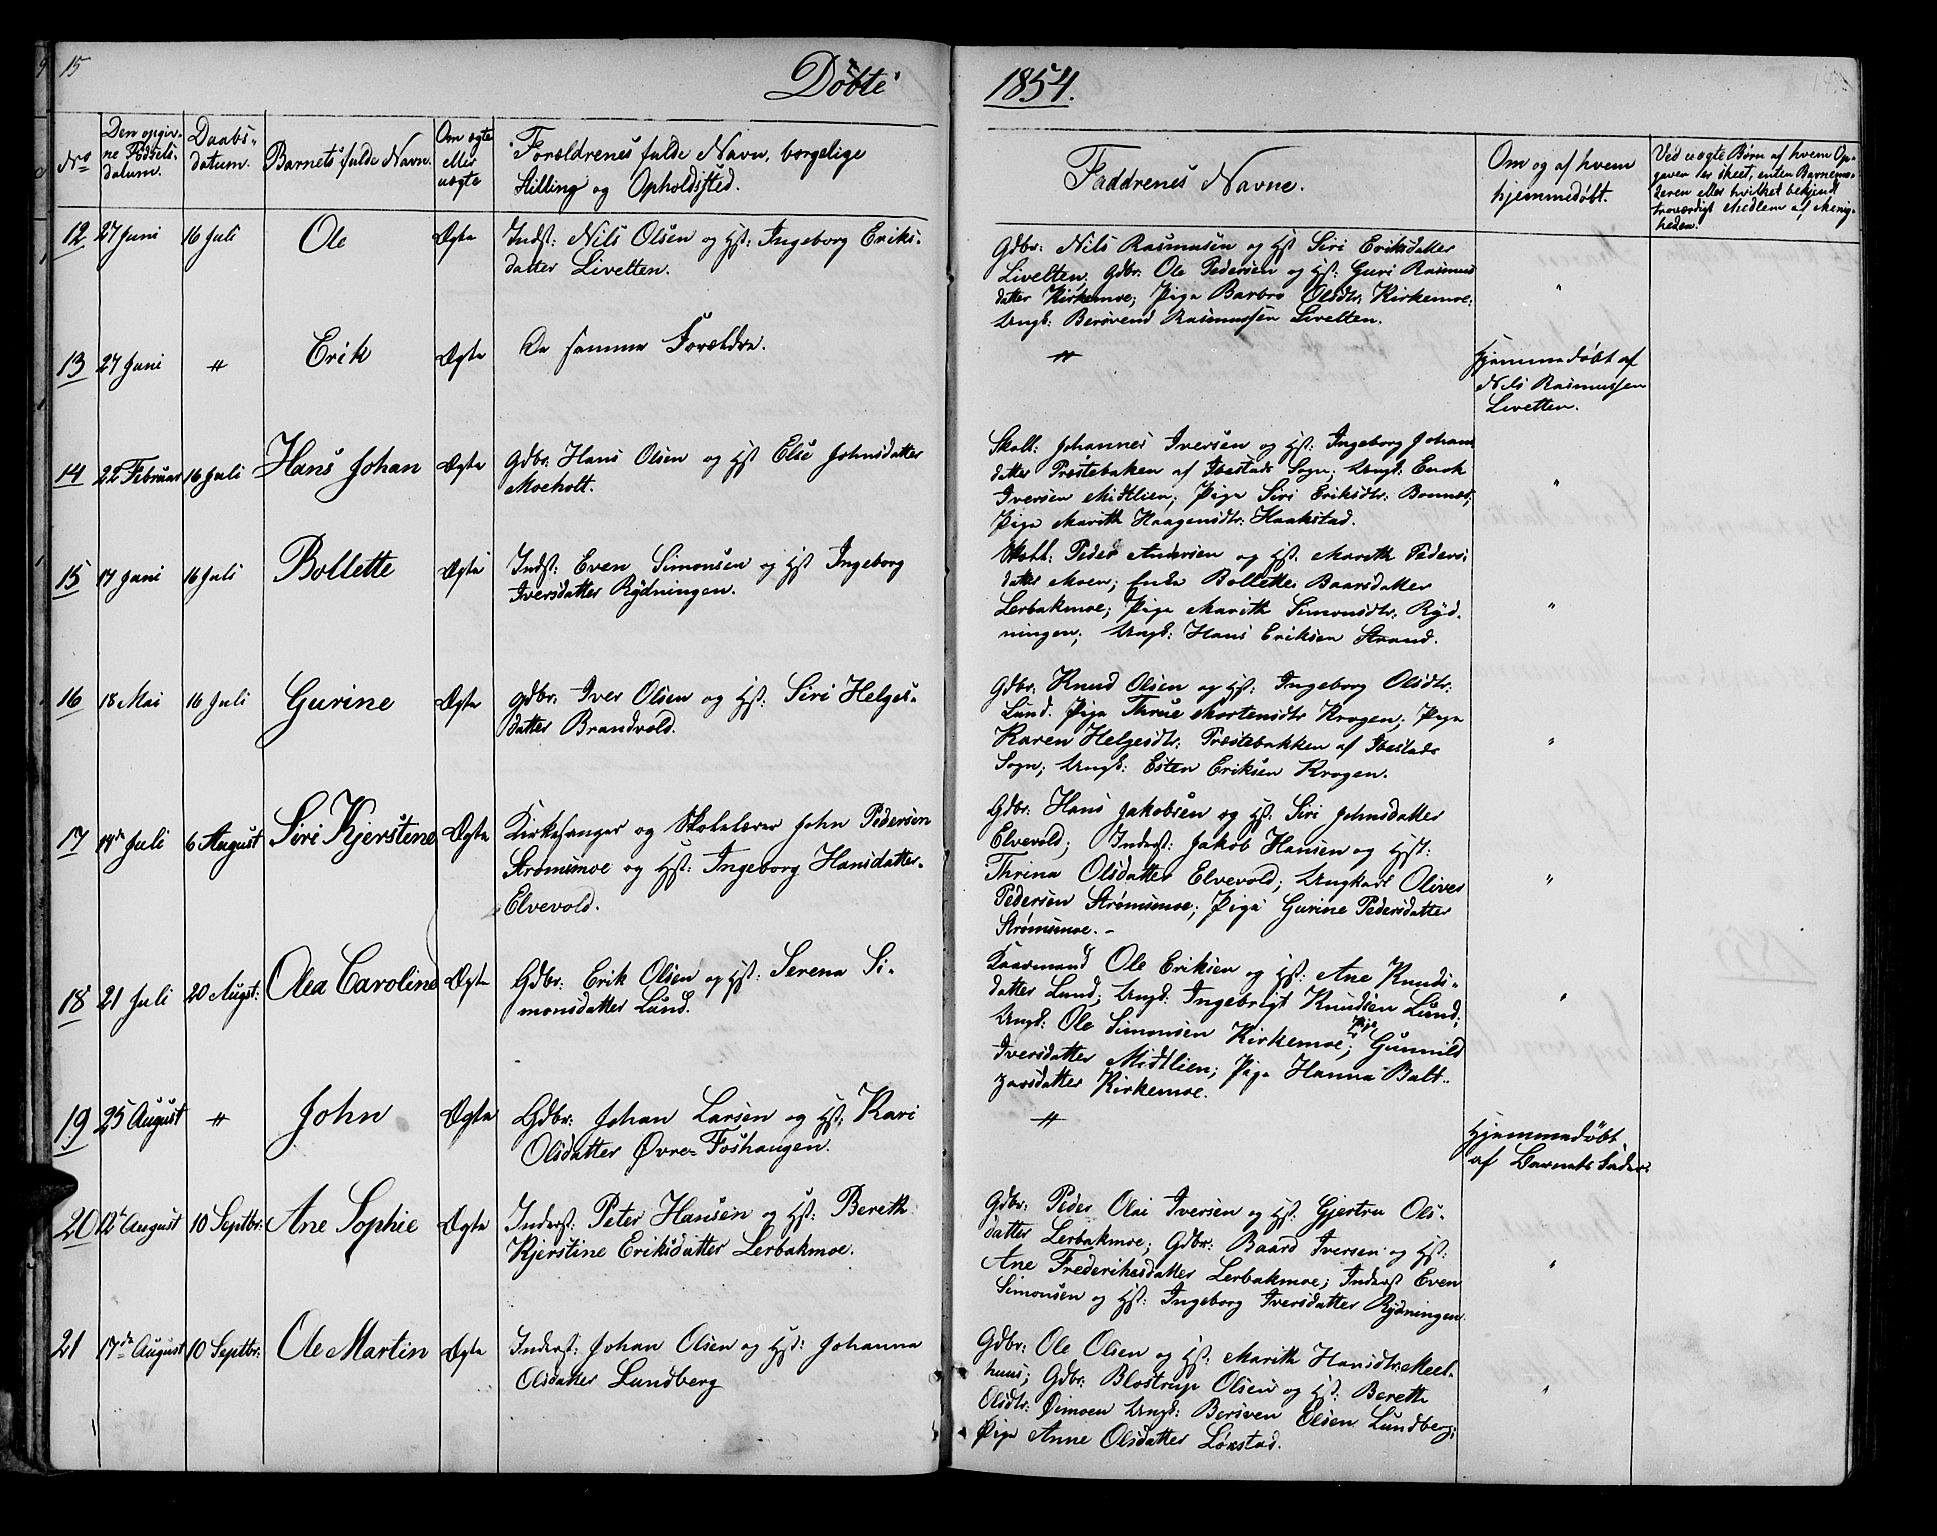 15
Döbte
1854.
No
Den opgiv-
ne Födsels-
datum.
Daabs-
datum.
Barnets fulde Navn.
Om ægte
eller
uægte
Forældrenes fulde Navn, borgelige
Stilling og Opholdssted.
Faddrenes Navne.
Om og af hvem
hjemmedøbt.
Ved uægte Børn af hvem Op-
gaven er skeet, enten Barnemo-
deren eller hvilket bekjend
troværdigt Medlem af Menig-
heden.
12 27 Juni 16 Juli Ole Ægte
Indst: Nils Olsen og Hst: Ingeborg Eriks-
datter Livelten.
Gdbr: Nils Rasmusen og Hst Siri Eriksdatter
Livelten, Gdbr: Ole Pedersen og Hst: Guri Rasmus
datter Kirkemoe; Pige Barbro Olsdtr: Kirkemoe;
Ungk: Berøvend Rasmussen Livelten.
"
13 27 Juni " Erik Ægte
De samme Forældre.
"
Hjemmedøbt af
Nils Rasmussen
Livetten.
14 22 Februar 16 Juli Hans Johan Ægte
Gdbr: Hans Olsen og Hst Else Johnsdatter
Moeholt.
Skoll: Johannes Iversen og Hst: Ingeborg Johans
datter Præstebaken af Ibestads Sogn; Ungk: Enok
Iversen Midtlien; Pige Siri Eriksdtr: Bonnes;
Pige Marith Haagensdtr: Haakstad.
"
15 17 Juni 16 Juli Bollette Ægte
Indst: Even Simonsen og Hst Ingeborg
Iversdatter Rydningen.
Skoll: Peder Andersen og Hst: Marith Peders-
datter Moen; Enke Bollette Baarsdatter
Lerbakmoe; Pige Marith Simonsdtr: Ryd-
ningen; Ungk: Hans Eriksen Strand.
"
16 18 Mai 16 Juli Gurine Ægte
Gdbr: Iver Olsen og Hst: Siri Helges-
datter Brandvold.
Gdbr: Knud Olsen og Hst: Ingeborg Olsdtr:
Lund. Pige Thrue Mortensdtr Krogen; Pige
Karen Helgesdtr: Præstebakken af Ibestads
Sogn; Ungk: Esten Eriksen Krogen.
"
17 19de Juli 6 August Siri Kjerstene Ægte
Kirkesanger og Skolelærer John Pedersen
Strømsmoe og Hst: Ingeborg Hansdatter
Elvevold.
Gdbr: Hans Jakobsen og Hst: Siri Johnsdatter
Elvevold; Inderst: Jakob Hansen og Hst:
Thrina Olsdatter Elvevold; Ungkarl Oliver
Pedersen Strømsmoe; Pige Gurine Pedersdatter
Strømsmoe. -
"
18 21 Juli 20 Augst: Olea Caroline Ægte
Gdbr: Erik Olsen og Hst: Serena Si-
monsdatter Lund.
Kaarmand Ole Eriksen og Hst: Ane Knuds-
datter Lund; Ungk: Ingebrigt Knudsen Lund;
Ungk: Ole Simonsen Kirkemoe; Pige Gunnild
Iversdatter Midtlien; Pige Hanna Balt-
zarsdatter Kirkemoe.
"
19 25 August " John Ægte
Gdbr: Johan Larsen og Hst: Kari
Olsdatter Øvre-Foshaugen.
"
Hjemmedøbt
af Barnets Fader.
20 12te August 10 Septbr: Ane Sophie Ægte
Inderst: Peter Hansen og Hst: Bereth
Kjerstine Eriksdatter Lerbakmoe.
Gdbr: Peder Olai Iversen og Hst: Gjertru Ols-
datter Lerbakmoe; Gdbr: Baard Iversen og Hst:
Ane Frederikesdatter Lerbakmoe; Inderst Even
Simonsen og Hst: Ingeborg Iversdatter Rydningen.
"
21 17de August 10 Septbr: Ole Martin Ægte
Inderst: Johan Olsen og Hst: Johanna
Olsdatter Lundberg
Gdbr: Ole Olsen og Hst: Marith Hansdtr: Meel-
huus; Gdbr: Blostrup Olsen og Hst: Berette
Olsdtr: Øimoen Ungk: Berøven Olsen Lundberg;
Pige Anne Olsdatter Løxstad.
"